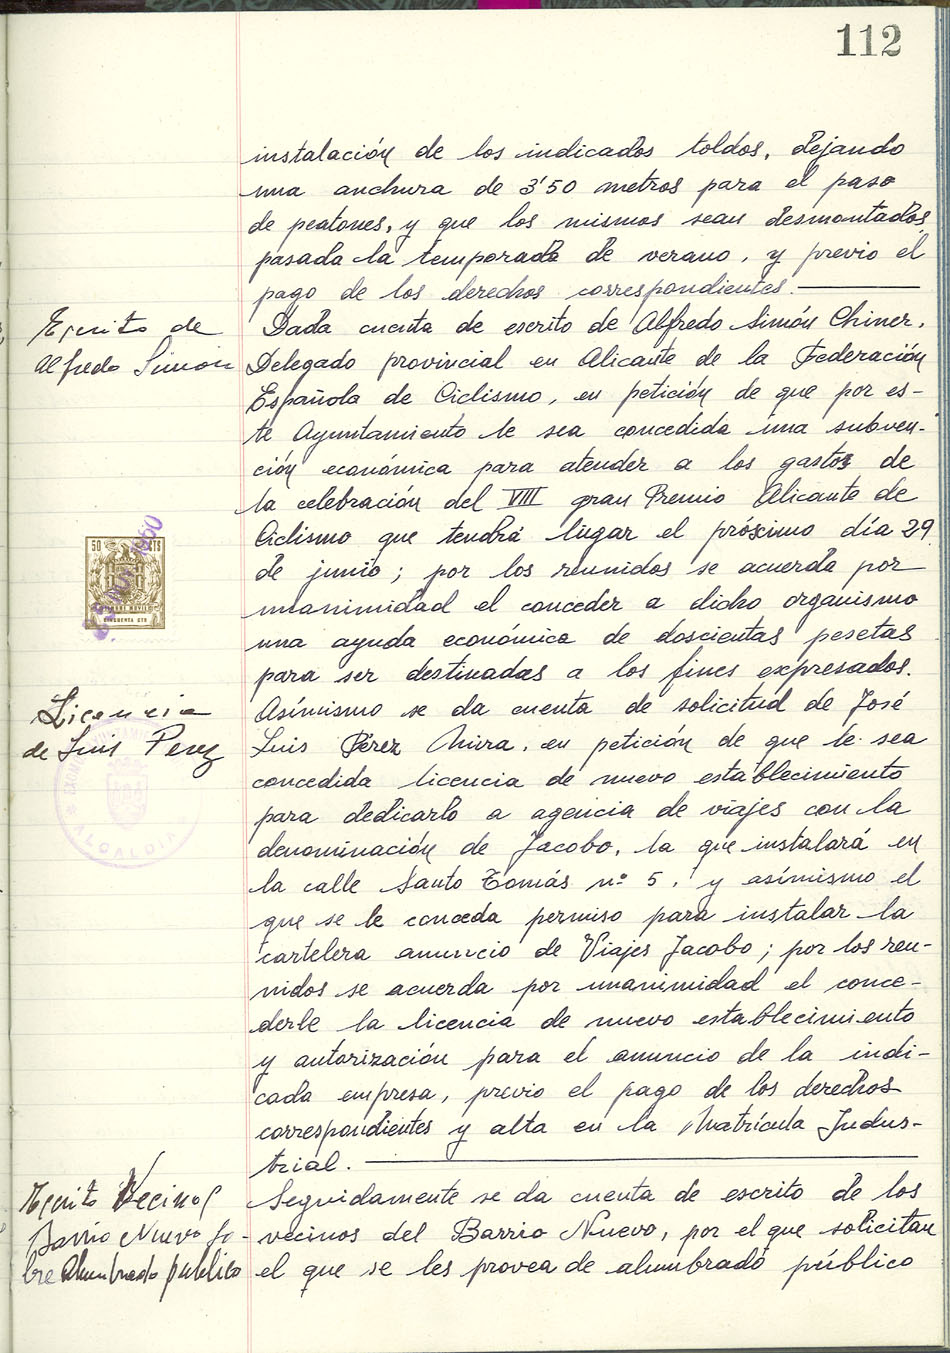 112
instalación de los indicados toldos, dejando
una anchura de 3'50 metros para el paso
de peatones, y que los mismos sean desmontados
pasada la temporada de verano, y previo el
pago de los derechos correspondientes.
Escrito de
Alfredo Simón
Dada cuenta de escrito de Alfredo Simón Chiner,
Delegado provincial en Alicante de la Federación
Española de Ciclismo, en petición de que por es-
te Ayuntamiento le sea concedida una subven-
ción económica para atender a los gastos de
la celebración del VIII gran Premio Alicante de
Ciclismo que tendrá lugar el próximo día 29
de junio; por los reunidos se acuerda por
unanimidad el conceder a dicho organismo
una ayuda económica de doscientas pesetas
para ser destinadas a los fines expresados.
50 CTS
JUN 1960
CINCUENTA CTS
Licencia
de Luis Perez
ALCALDIA
Asímismo se da cuenta de solicitud de José
Luis Pérez Mira, en petición de que le sea
concedida licencia de nuevo establecimiento
para dedicarlo a agencia de viajes con la
denominación de Jacobo, la que instalará en
la calle Santo Tomás nº 5, y asímismo el
que se le conceda permiso para instalar la
cartelera anuncio de Viajes Jacobo; por los reu-
nidos se acuerda por unanimidad el conce-
derle la licencia de nuevo establecimiento
y autorización para el anuncio de la indi-
cada empresa, previo el pago de los derechos
correspondientes y alta en la Matrícula Indus-
trial.
Escrito Vecinos
Barrio Nuevo so-
bre Alumbrado público
Seguidamente se da cuenta de escrito de los
vecinos del Barrio Nuevo, por el que solicitan
el que se les provea de alumbrado público